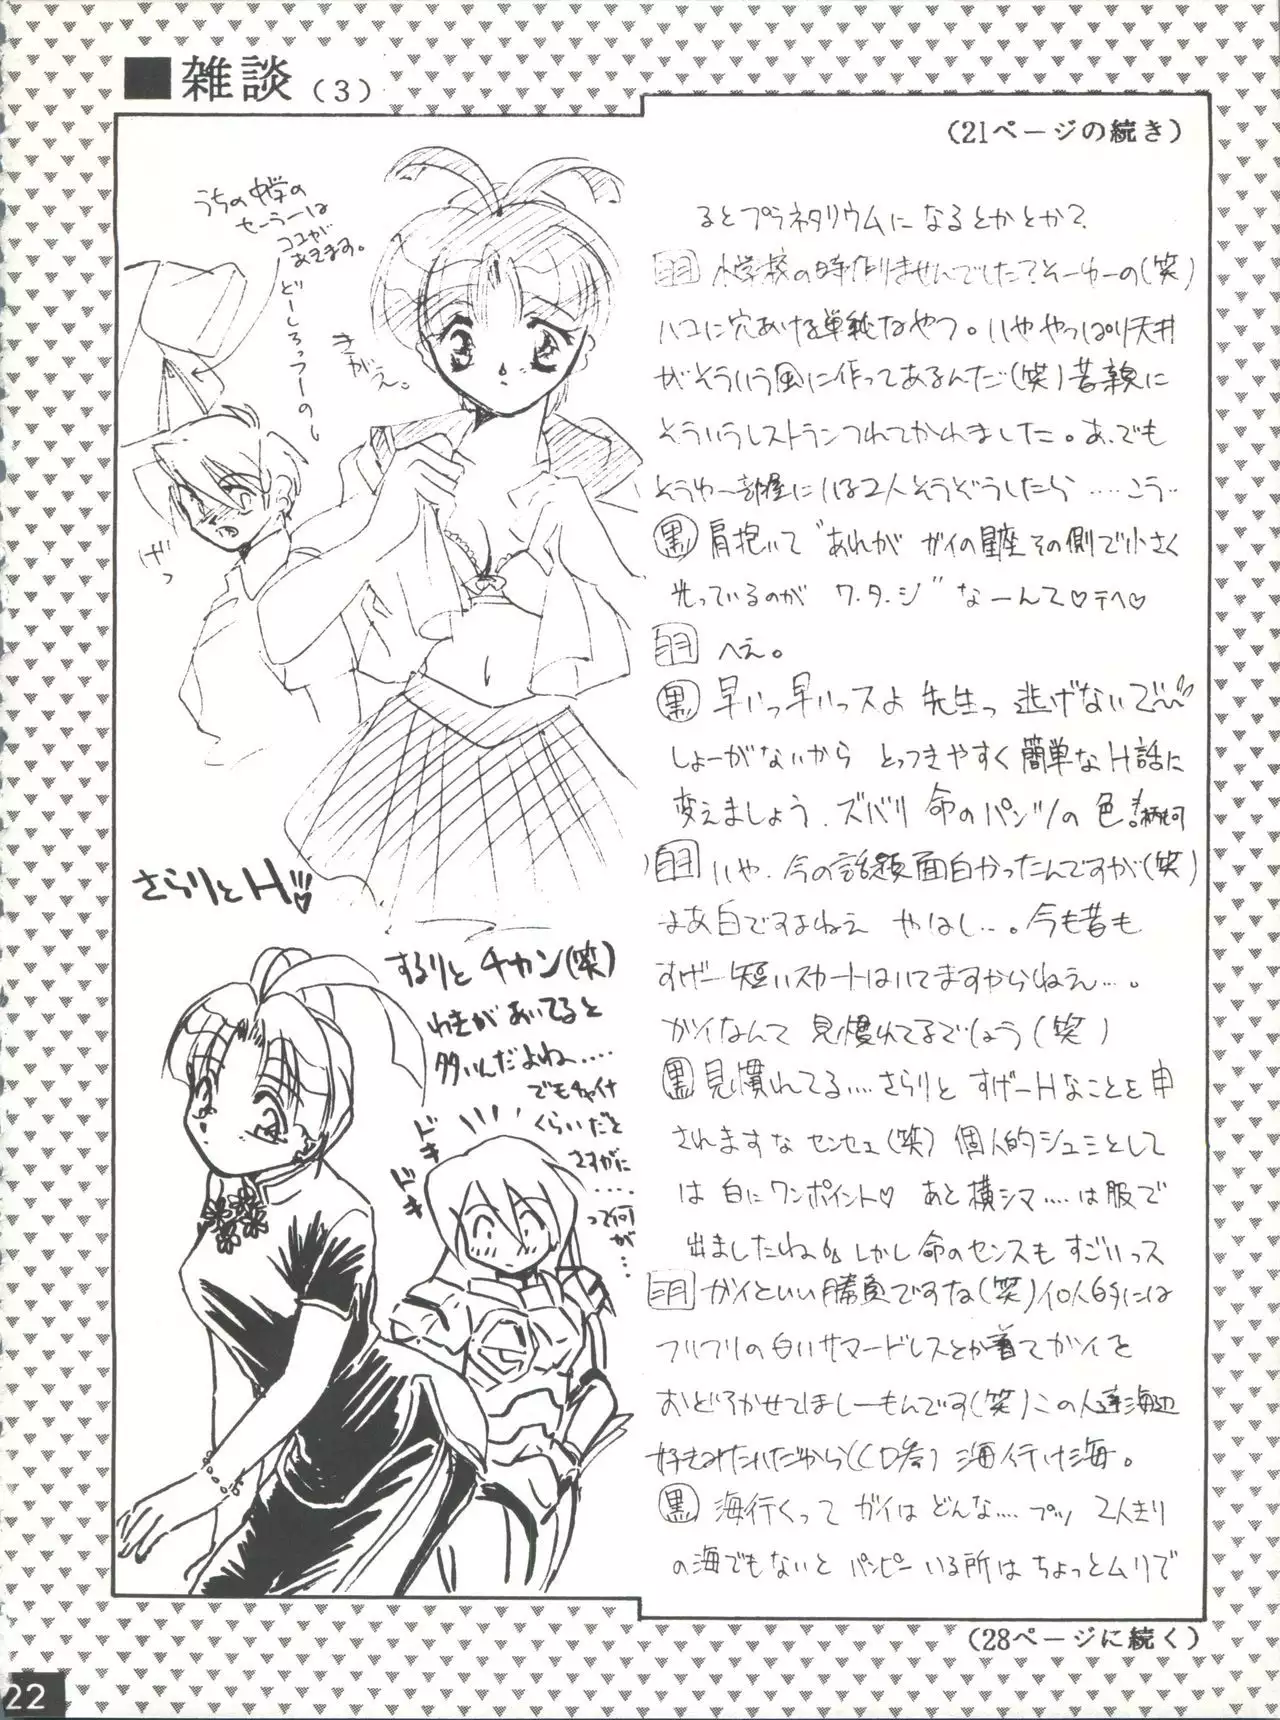 ■雑談（3）
(21ページの続き)
うちの中学の
セーラーは
ココが
あきます。
どーしろっつーの
きがえ。
さらりとH♡
するりとチカン(笑)
わきがあいてると
多いんだよね……
でもチャイナ
くらいだと
さすがに
……
って何
が…
ドキ
ドキ
るとプラネタリウムになるとかとか?
羽 小学校の時作りませんでした?そーゆーの(笑)
ハコに穴あける単純なやつ。いややっぱり天井
がそういう風に作ってあるんだ(笑)昔親に
そういうレストランつれてかれました。あ、でも
そうゆー部屋にいる2人そうぞうしたら ……こう‥
黒 肩抱いて “あれが ガイの星座その側で小さく
光っているのが ワ・タ・シ” なーんて♡テヘ♡
羽 へえ。
黒 早いっ早いっスよ 先生っ 逃げないで〜
しょーがないから とっつきやすく 簡単なH話に
変えましょう. ズバリ 命のパンツの 色!柄は何
羽 いや. 今の話題面白かったんですが(笑)
まあ白ですよねえ やはし…。今も昔も
すげー短いスカートはいてますからねえ…。
ガイなんて 見慣れてるでしょう(笑)
黒 見慣れてる…‥さらりと すげーHなことを 申
されますな センセェ(笑) 個人的シュミとして
は 白に ワンポイント♡ あと横シマ……は服で
出ましたね しかし命のセンスも すごいっス
羽 ガイといい勝負ですな(笑)個人的には
フリフリの白いサマードレスとか着てガイを
おどろかせてほしーもんです(笑)この人達海辺
好きみたいだから(CD答) 海行け海。
黒 海行くって ガイは どんな…… プッ 2人きり
の海でもないと パンピー いる所は ちょっとムリで
(28ページに続く)
22